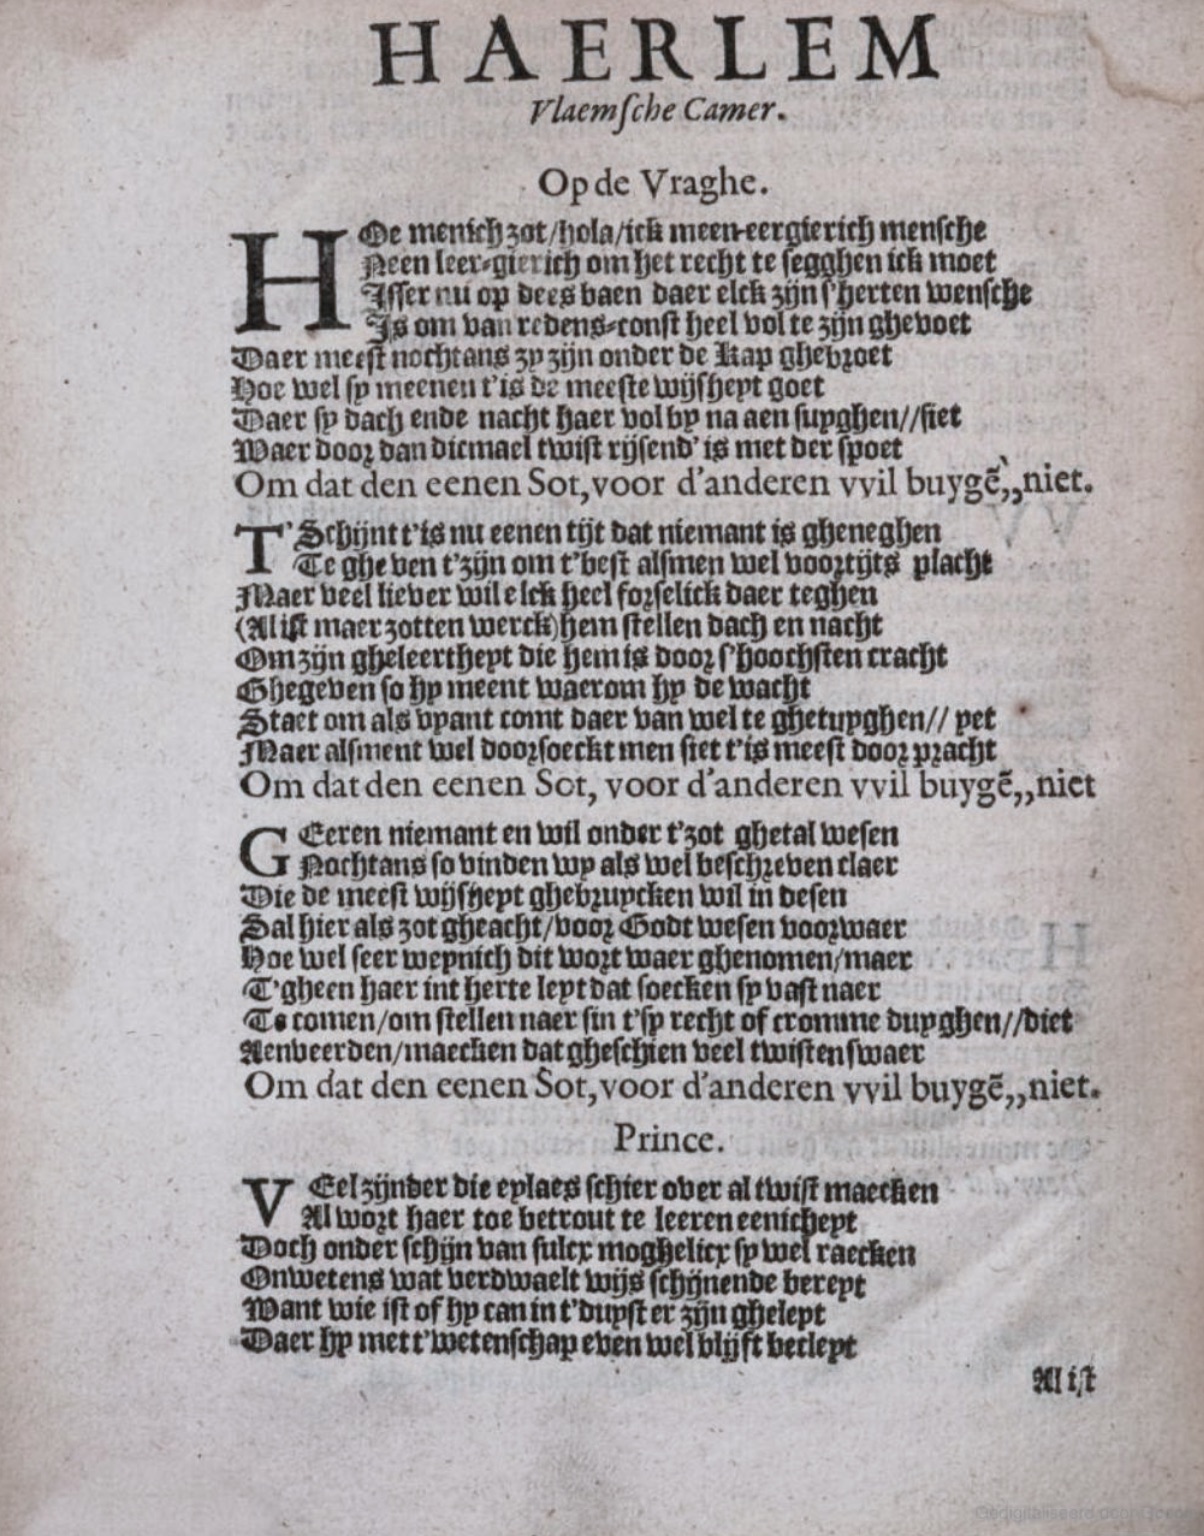 HAERLEM
Vlaemsche Camer.
Op de Vraghe.
HOe menich zot/hola/ick meen eergierich mensche
Neen leer-gierich om het recht te segghen ick moet
Isser nu op dees baen daer elck zijn s'herten wensche
Is om van redens-const heel vol te zijn ghevoet
Daer meest nochtans zy zijn onder de Kap ghebroet
Hoe wel sy meenen t'is de meeste wijsheyt goet
Daer sy dach ende nacht haer vol by na aen suyghen//siet
Waer door dan dicmael twist rijsend' is met der spoet
Om dat den eenen Sot, voor d'anderen vvil buygẽ,,niet.
T'Schijnt t'is nu eenen tijt dat niemant is gheneghen
Te gheven t'zijn om t'best alsmen wel voortijts placht
Maer veel liever wil elck heel forselick daer teghen
(Al ist maer zotten werck) hem stellen dach en nacht
Om zijn gheleertheyt die hem is door s'hoochsten cracht
Ghegeven so hy meent waerom hy de wacht
Staet om als vyant comt daer van wel te ghetuyghen// yet
Maer alsment wel doorsoeckt men siet t'is meest door pracht
Om dat den eenen Sot, voor d'anderen vvil buygẽ,,niet
GEeren niemant en wil onder t'zot ghetal wesen
Nochtans so vinden wy als wel beschreven claer
Die de meest wijsheyt ghebruycken wil in desen
Sal hier als zot gheacht/voor Godt wesen voorwaer
Hoe wel seer weynich dit wort waer ghenomen/maer
T'gheen haer int herte leyt dat soecken sy vast naer
Te comen/om stellen naer sin t'sy recht of cromme duyghen//diet
Aenveerden/maecken dat gheschien veel twisten swaer
Om dat den eenen Sot, voor d'anderen vvil buygẽ,,niet.
Prince.
VEel zijnder die eylaes schier over al twist maecken
Al wort haer toe betrout te leeren eenicheyt
Doch onder schijn van sulcx moghelicx sy wel raecken
Onwetens wat verdwaelt wijs schijnende bereyt
Want wie ist of hy can in t'duyster zijn gheleyt
Daer hy met t'wetenschap even wel blijft becleyt
Al ist